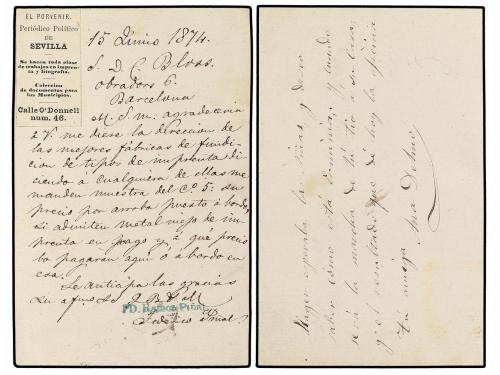 EL PORVENIR.
Periódico Político
DE
SEVILLA
Se hacen toda clase
de trabajos en impren-
ta y litografía.
Colección
de documentos para
los Municipios.
Calle O'Donnell
num. 46.
15 Junio 1874.
S. D. C.
Obradors 6.
Barcelona
M. S. m. agradeceria
á V. me diese la direccion de
las mejores fábricas de fundi-
cion de tipos de imprenta di-
ciendo á cualquiera de ellas me
manden muestra del Cº 5: su
precio por arroba puesto á bordo,
si admiten metal viejo de im-
prenta en pago y á qué precio
lo pagaran aquí ó á bordo en
esa.
Le anticipa las gracias
su afmo
PD. RAMOS PIÑAL
Federico Piñal
las niñas y deseo
saber cómo está
será la marcha de tu tio á su casa,
y el resultado que dé hoy la
Tu amiga